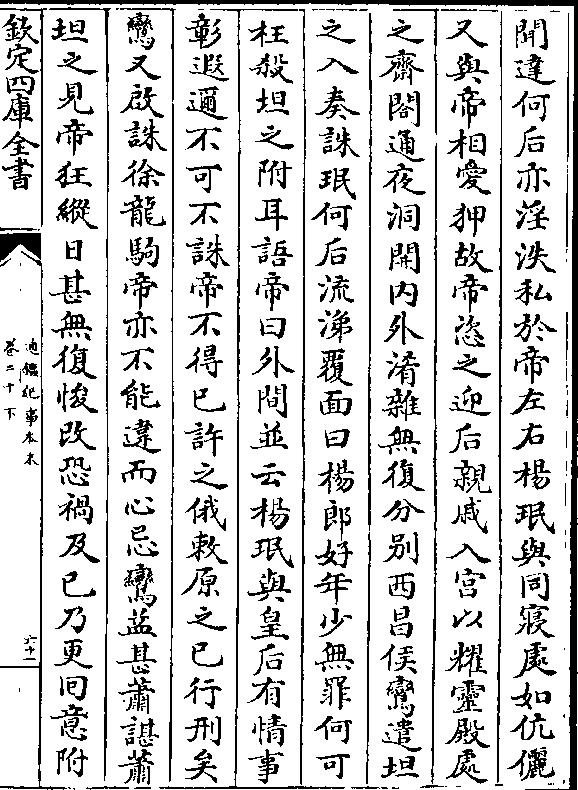 聞達何后亦淫泆私於帝左右楊珉與同寢處如伉儷
又與帝相愛狎故帝恣之迎后親戚入宫以耀靈殿處
之齋閤通夜洞開内外淆雜無復分别西昌侯鸞遣坦
之入奏誅珉何后流涕覆面曰楊郎好年少無罪何可
枉殺坦之附耳語帝曰外間並云楊珉與皇后有情事
彰遐邇不可不誅帝不得已許之俄敕原之已行刑矣
鸞又啟誅徐龍駒帝亦不能違而心忌鸞益甚蕭諶蕭
坦之見帝狂縱日甚無復悛改恐禍及已乃更回意附
欽定四庫全書
通鑑紀事本末
卷二十下
六十一